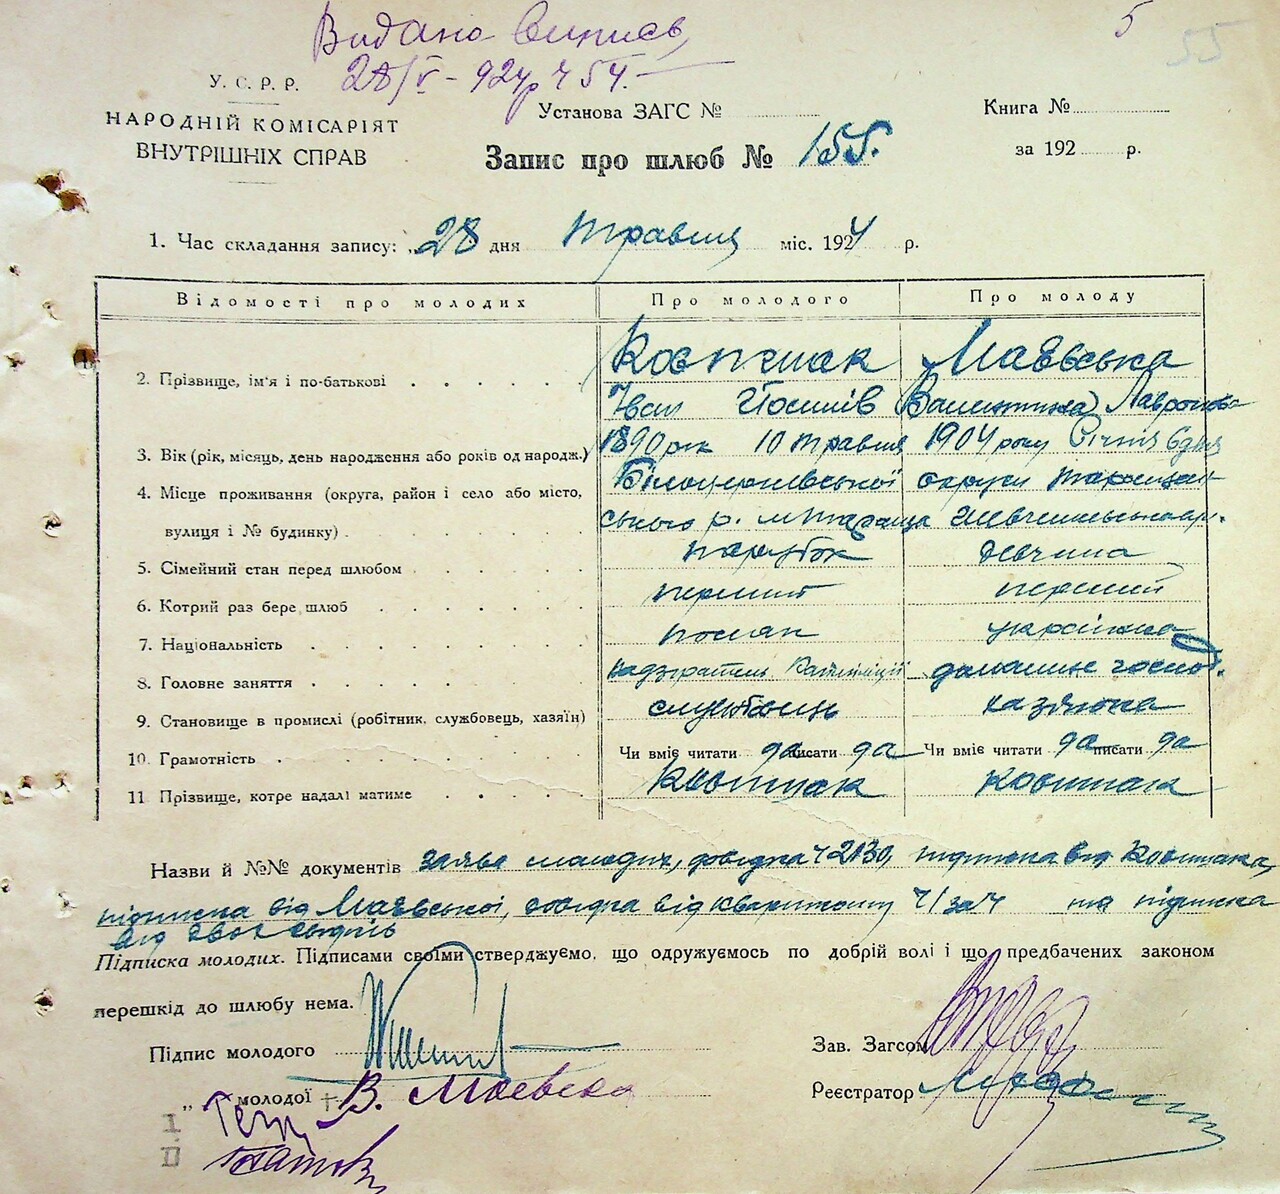 Видано Випись
5
55
28/V-924р Ч 54.
У. С. Р. Р.
НАРОДНІЙ КОМІСАРІЯТ
ВНУТРІШНІХ СПРАВ
Установа ЗАГС №
Книга №
Запис про шлюб № 155.
за 192 р.
1. Час складання запису: „28 дня травня міс. 1924 р.
Відомості про молодих Про молодого Про молоду
2. Прізвище, ім'я і по-батькові Маєвська
Іван Йосипів Валентина Лавронова
3. Вік (рік, місяць, день народження або років од народж.) 1890 рік 10 травня 1904 року Січня 6 дня
4. Місце проживання (округа, район і село або місто, Білоцерківської округи Таращан-
вулиця і № будинку) ського р. м Тараща
5. Сімейний стан перед шлюбом парубок девчина
6. Котрий раз бере шлюб первий первий
7. Національність поляк українка
8. Головне заняття надзиратель домашнє госпо.
9. Становище в промислі (робітник, службовець, хазяїн) службовець хазяйка
10. Грамотність Чи вміє читати да писати да Чи вміє читати да писати да
11 Прізвище, котре надалі матиме Ковтшак Ковтшак
Назви й №№ документів заява молодих, довідка Ч 2130, підписка від
підписка від Маєвської, довідка від кварткому Ч/ та підписка
від двох свідків
Підписка молодих. Підписами своїми стверджуємо, що одружуємось по добрій волі і що предбачених законом
перешкід до шлюбу нема.
Підпис молодого
Зав. Загсом
„ молодої В. Маевска
Реєстратор
I
II